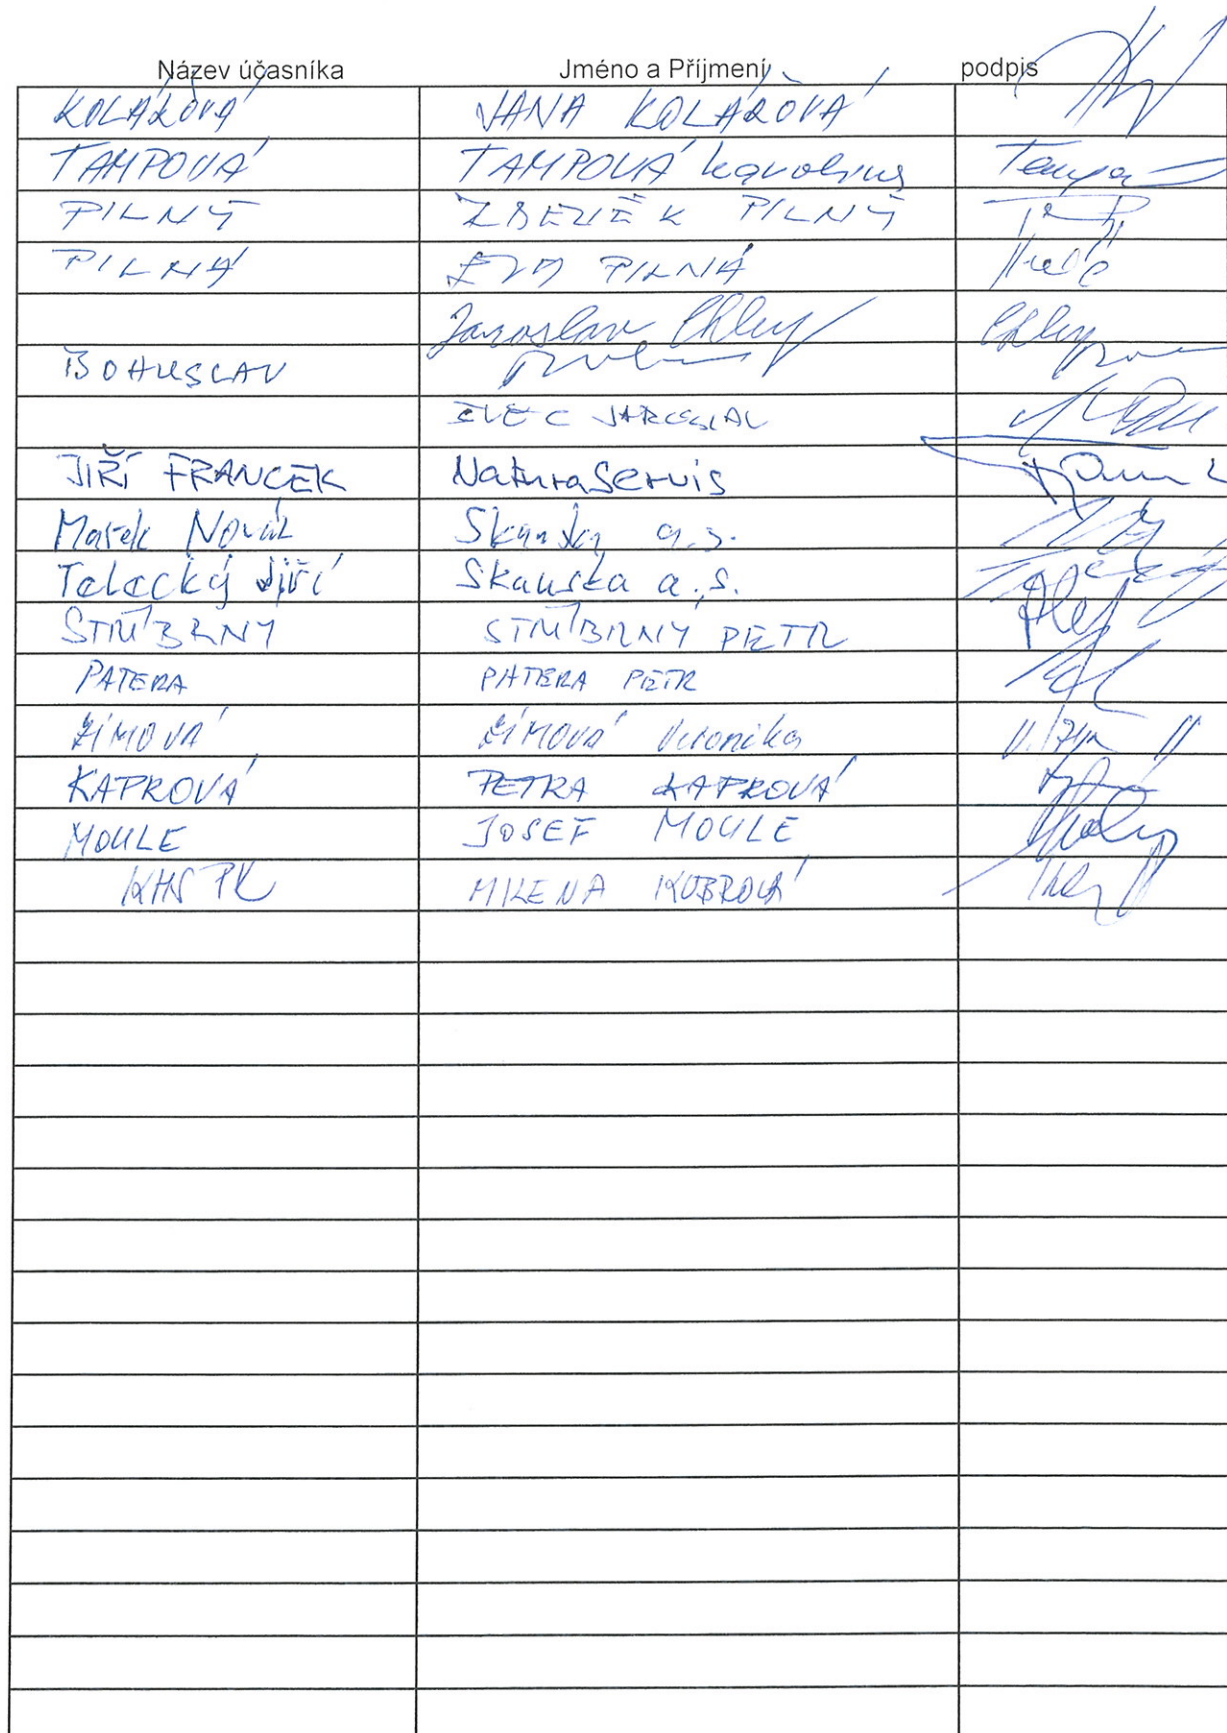 Název účasníka Jméno a Příjmení podpis
KOLÁŘOVÁ JANA KOLÁŘOVÁ
TAMPOVÁ TAMPOVÁ Karolina Tampa
PILNÝ ZDENĚK PILNÝ
PILNÁ EVA PILNÁ
Jaroslav
BOHUSLAV
JAROSLAV
JIŘÍ FRANCEK NaturaServis
Marek Novák Skanska a.s.
Telecký Jiří Skanska a.s.
STŘÍBRNÝ STŘÍBRNÝ PETR
PATERA PATERA PETR
ZÍMOVÁ ZÍMOVÁ Veronika
KAPROVÁ PETRA KAPROVÁ
MOULE JOSEF MOULE
KHS PK MILENA KUBROVÁ